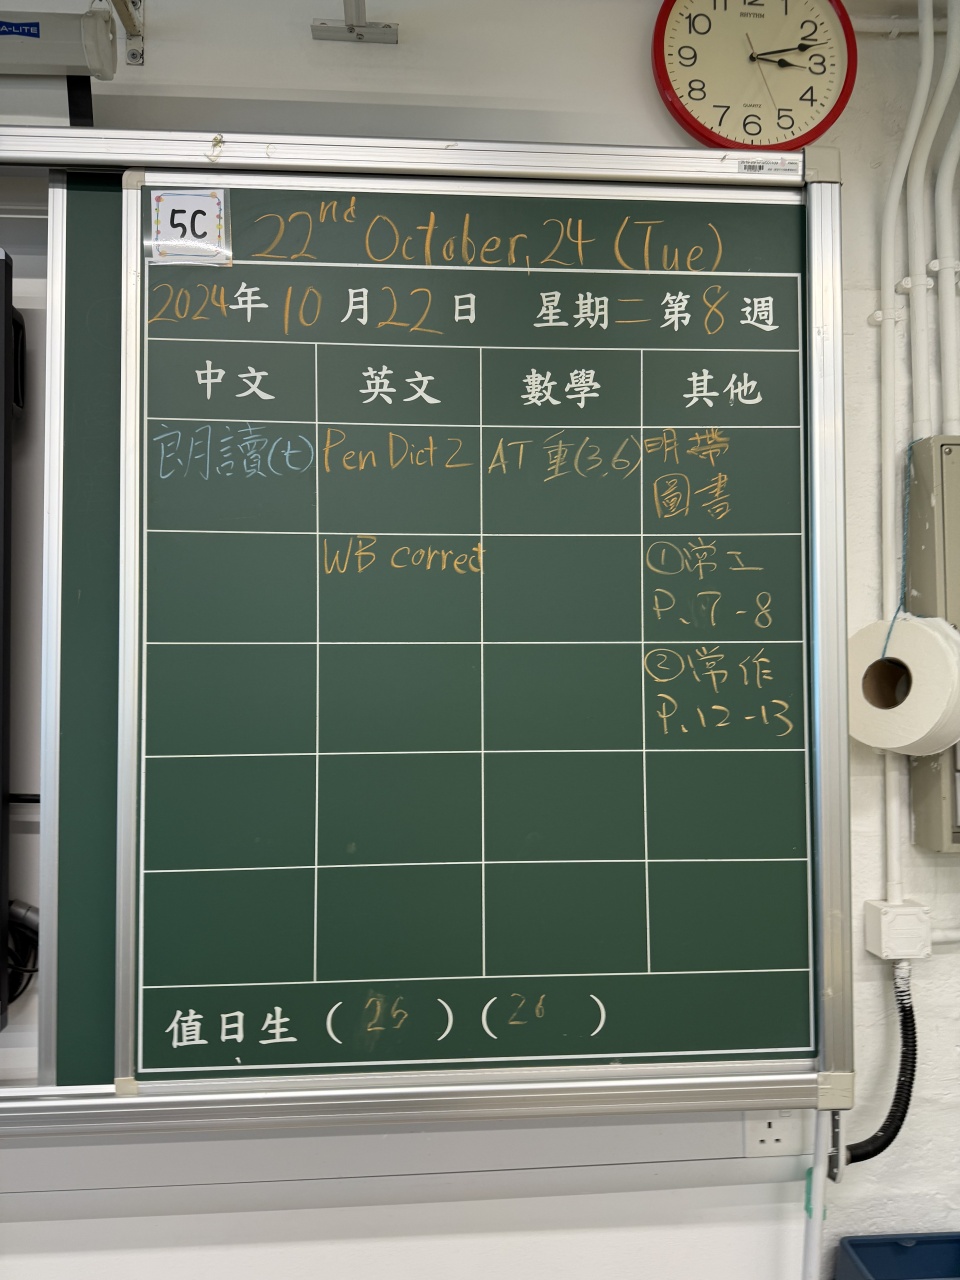 A-LITE
10 11 12 1 2 3 4 5 6 7 8 9
RHYTHM
QUARTZ
5C
22nd October, 24 (Tue)
2024年10月22日 星期二第8週
中文 英文 數學 其他
朗讀(t) Pen Dict 2 AT 重(3,6) 明帶
圖書
WB correct ①常工
P.7-8
②常作
P.12-13
值日生 (25) (26)